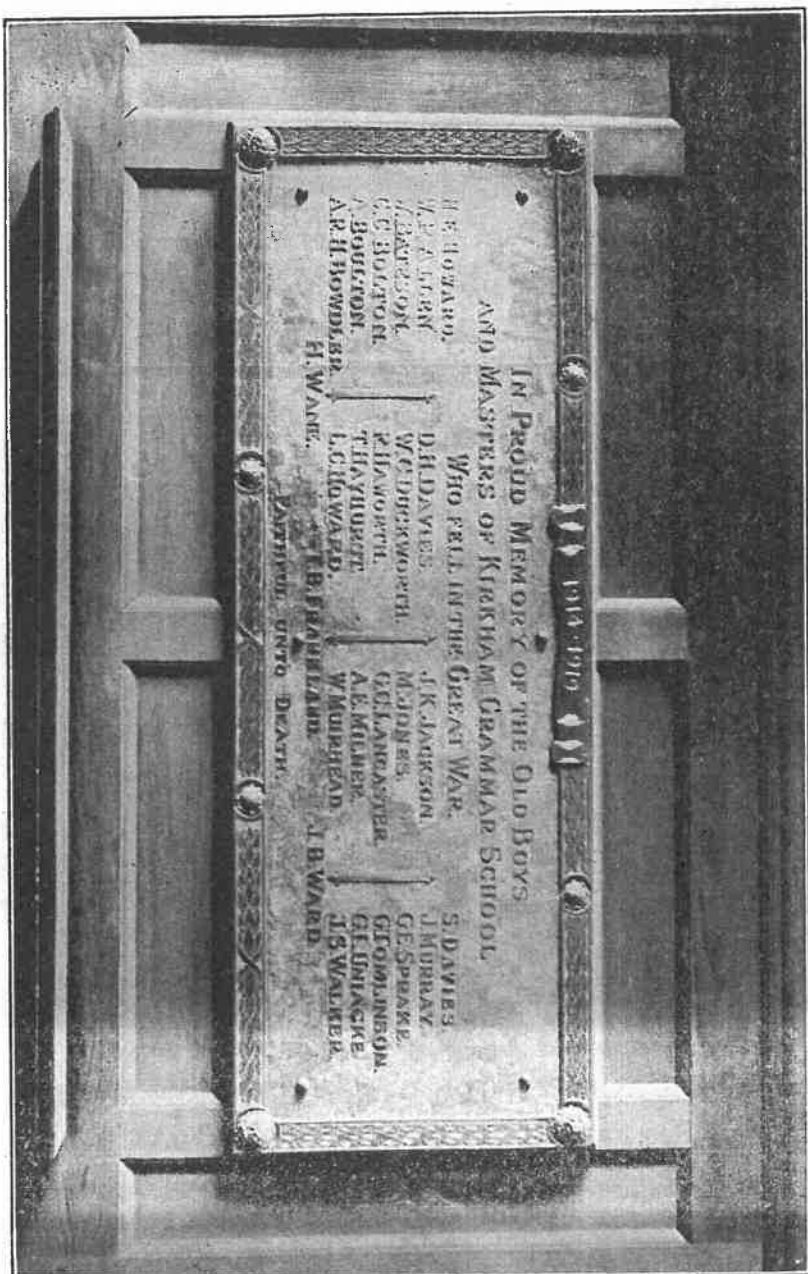 1914·1919
IN PROUD MEMORY OF THE OLD BOYS
AND MASTERS OF KIRKHAM GRAMMAR SCHOOL
WHO FELL IN THE GREAT WAR.
H.E.HOWARD.
ALLEN
BATESON.
C.C.BOLTON.
A.BOULTON.
A.R.H.BOWDLER.
D.H.DAVIES.
W.C.DUCKWORTH.
R.HAWORTH.
T.HAYHURST
L.C.HOWARD.
J.K.JACKSON.
M.JONES.
G.C.LANCASTER.
A.E.MILNER.
W.MUIRHEAD.
S.DAVIES
J.MURRAY.
G.E.SPRAKE.
G.TOMLINSON.
G.L.UNIACKE.
J.S.WALKER.
H.WANE. FRANKLAND. J.B.WARD
FAITHFUL UNTO DEATH.